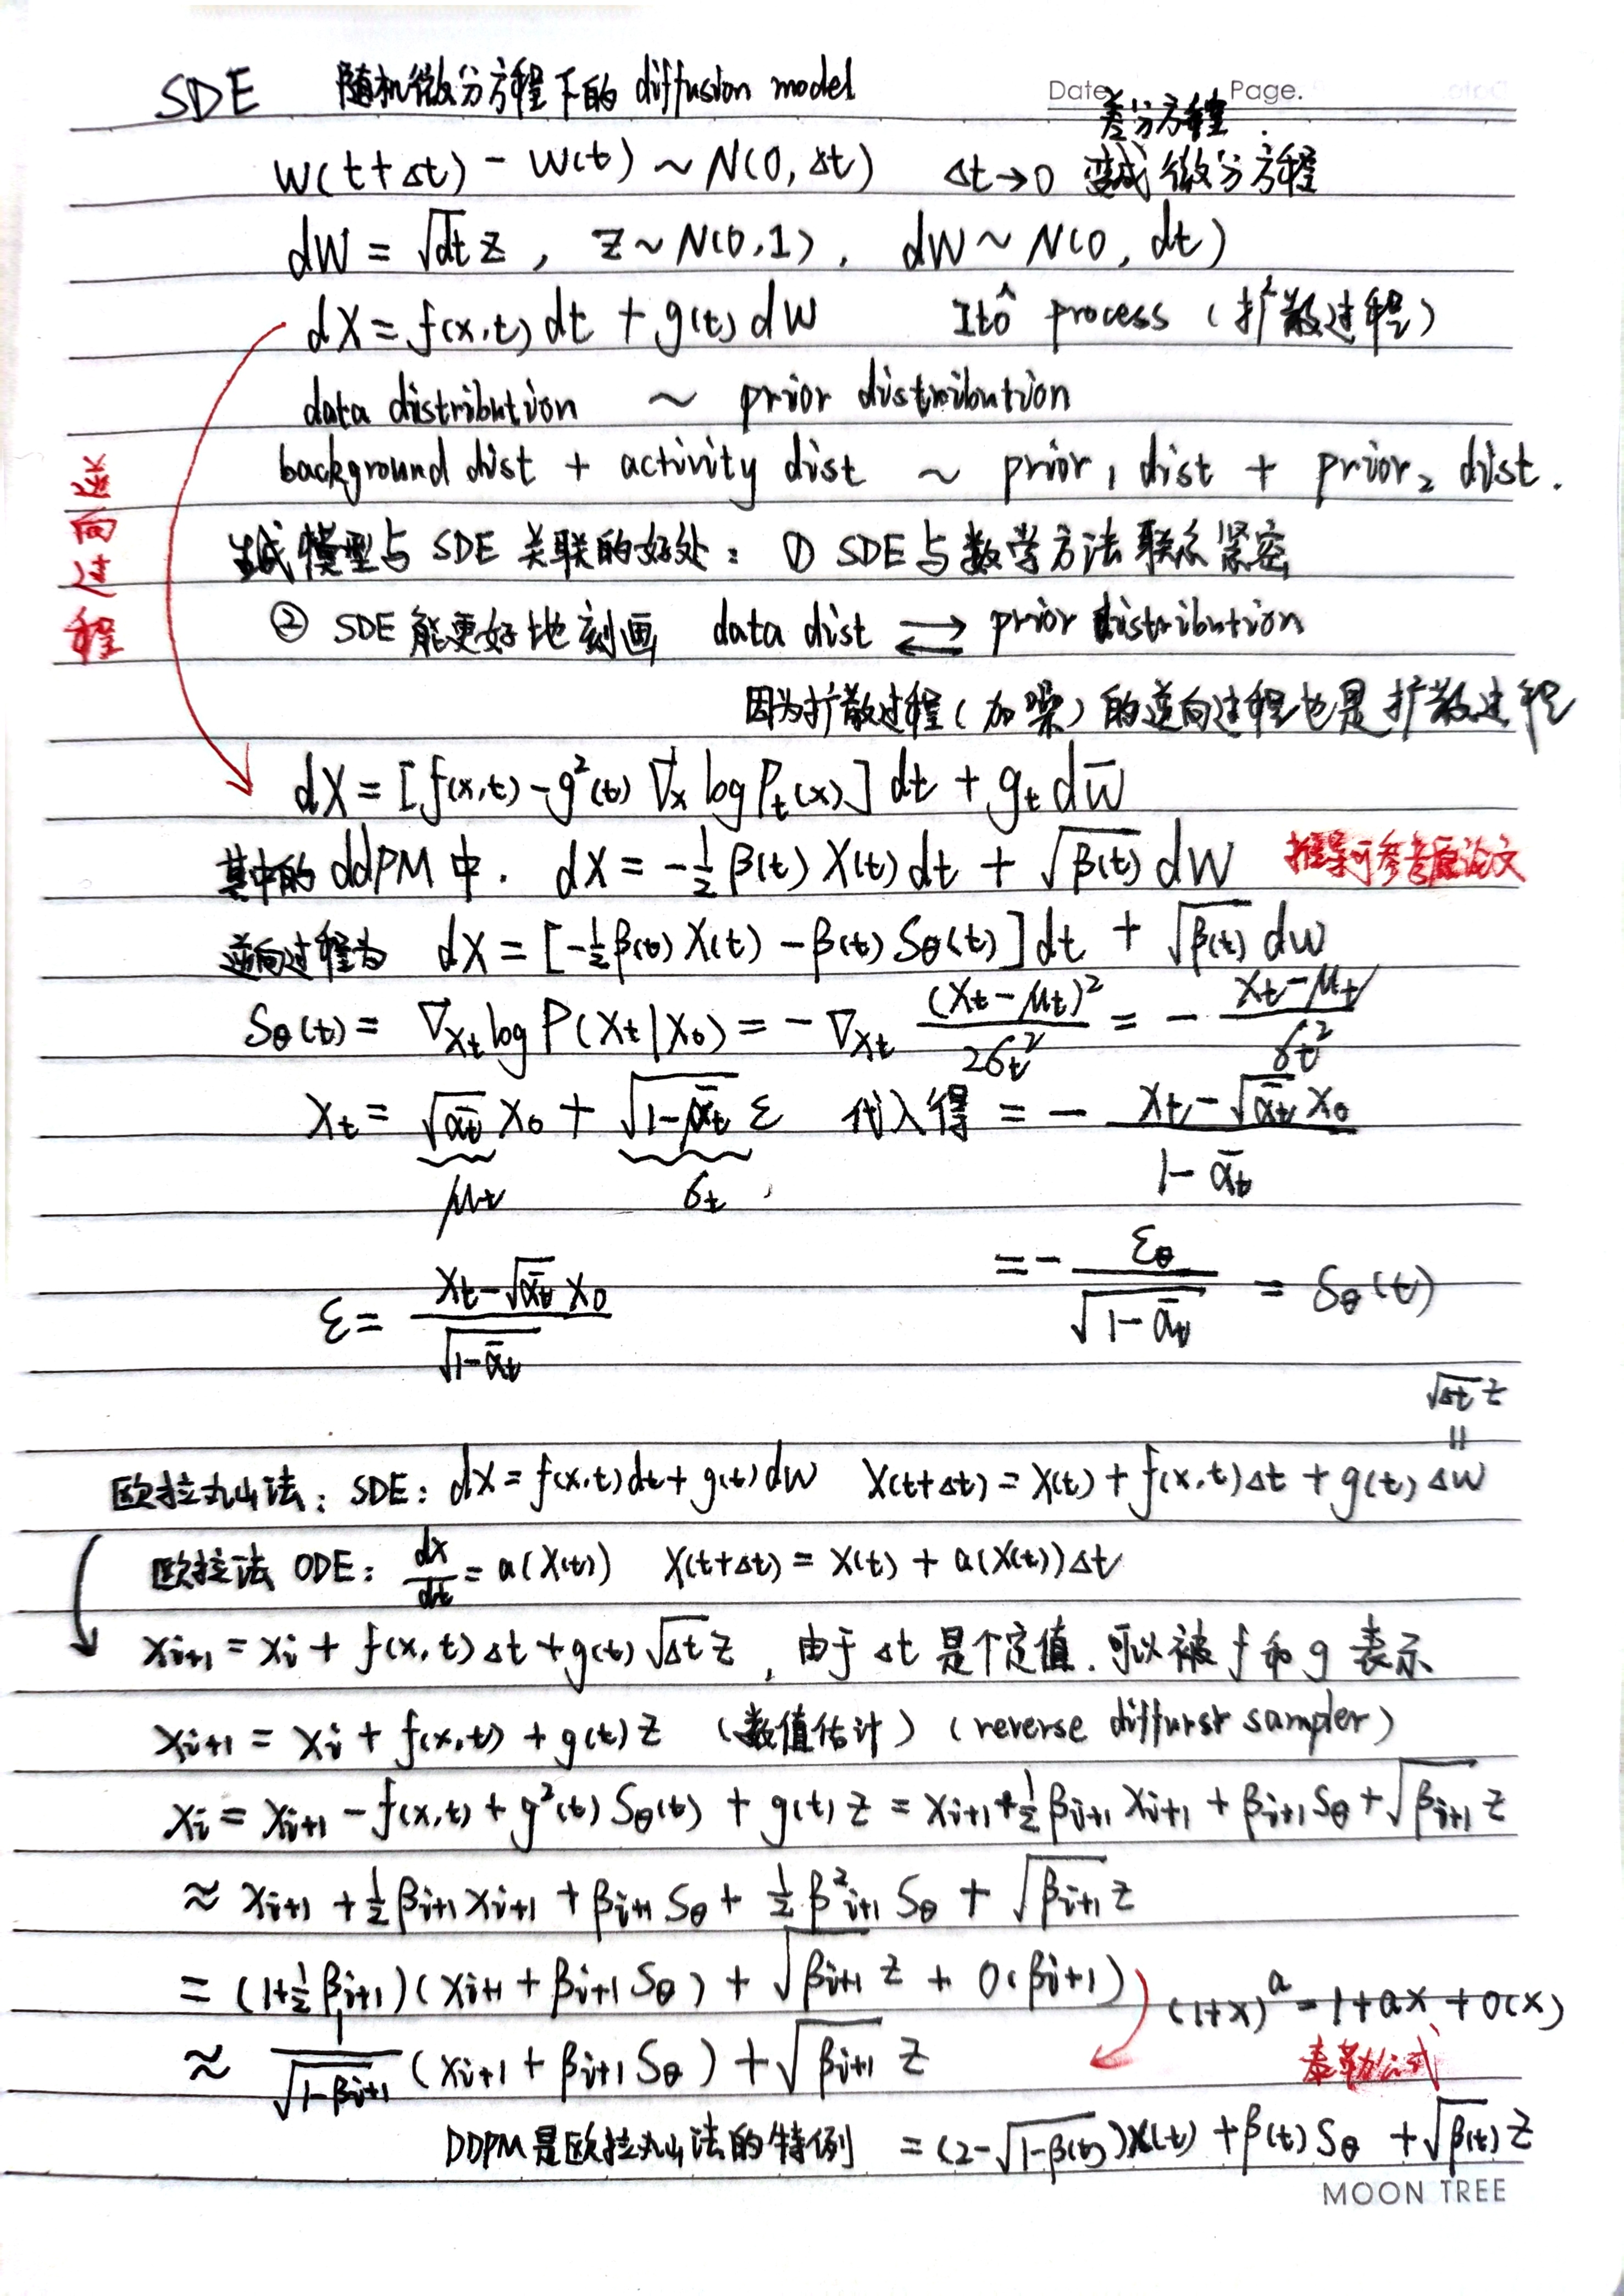 SDE 随机微分方程下的 diffusion model
Date. Page.
差分方程
W(t+Δt) - W(t) ~ N(0, Δt) Δt→0 变成微分方程
dW = √dt z , z ~ N(0,1) , dW ~ N(0, dt)
dX = f(x,t) dt + g(t) dW Itô process (扩散过程)
data distribution ~ prior distribution
background dist + activity dist ~ prior₁ dist + prior₂ dist.
逆向过程
生成模型与 SDE 关联的好处: ① SDE与数学方法联系紧密
② SDE 能更好地刻画 data dist ⇄ prior distribution
因为扩散过程(加噪)的逆向过程也是扩散过程
dX = [f(x,t) - g²(t) ∇ₓ log Pₜ(x)] dt + gₜ dW̄
其中的 ddPM 中. dX = -½ β(t) X(t) dt + √β(t) dW 推导可参考原论文
逆向过程为 dX = [-½β(t) X(t) - β(t) Sθ(t)] dt + √β(t) dW
Sθ(t) = ∇xₜ log P(Xₜ|X₀) = - ∇xₜ (Xₜ-μₜ)² / 2σₜ² = - (Xₜ-μₜ) / σₜ²
Xₜ = √ᾱₜ X₀ + √(1-ᾱₜ) ε 代入得 = - (Xₜ - √ᾱₜ X₀) / (1-ᾱₜ)
μₜ σₜ
ε = (Xₜ - √ᾱₜ X₀) / √(1-ᾱₜ) = - εθ / √(1-ᾱₜ) = Sθ(t)
√Δt z
=
欧拉丸山法: SDE: dX = f(x,t)dt + g(t)dW X(t+Δt) = X(t) + f(x,t)Δt + g(t) ΔW
欧拉法 ODE: dx/dt = a(X(t)) X(t+Δt) = X(t) + a(X(t))Δt
xᵢ₊₁ = xᵢ + f(x,t) Δt + g(t) √Δt z , 由于 Δt 是个定值. 可以被 f 和 g 表示
xᵢ₊₁ = xᵢ + f(x,t) + g(t) z (数值估计) (reverse diffurst sampler)
xᵢ = xᵢ₊₁ - f(x,t) + g²(t) Sθ(t) + g(t) z = xᵢ₊₁ + ½ βᵢ₊₁ xᵢ₊₁ + βᵢ₊₁ Sθ + √βᵢ₊₁ z
≈ xᵢ₊₁ + ½ βᵢ₊₁ xᵢ₊₁ + βᵢ₊₁ Sθ + ½ β²ᵢ₊₁ Sθ + √βᵢ₊₁ z
= (1+½ βᵢ₊₁)(xᵢ₊₁ + βᵢ₊₁ Sθ) + √βᵢ₊₁ z + O(βᵢ₊₁) (1+x)ᵃ = 1+ax + O(x)
≈ 1/√(1-βᵢ₊₁) (xᵢ₊₁ + βᵢ₊₁ Sθ) + √βᵢ₊₁ z 泰勒公式
DDPM是欧拉丸山法的特例 = (2-√(1-β(t)))X(t) + β(t) Sθ + √β(t) z
MOON TREE